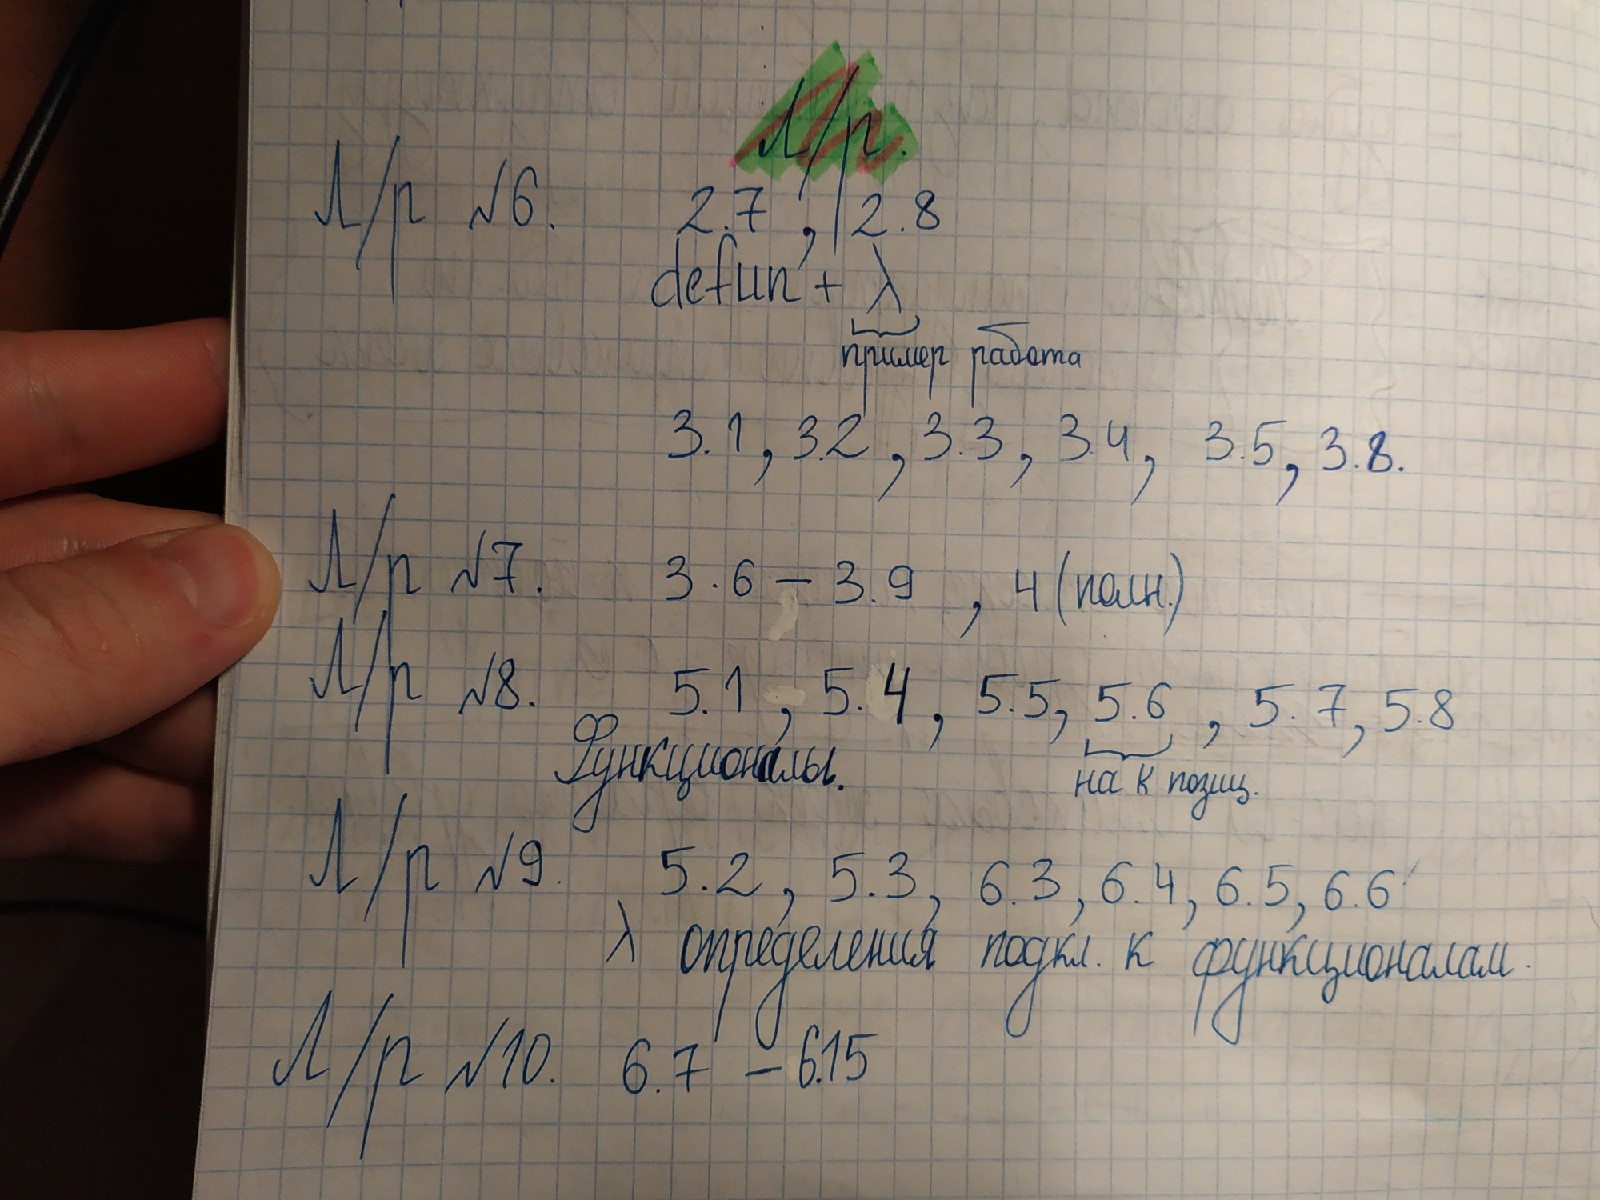 Л/р.
Л/р №6. 2.7, 2.8
defun + λ
пример работа
3.1, 3.2, 3.3, 3.4, 3.5, 3.8.
Л/р №7. 3.6 – 3.9, 4 (полн.)
Л/р №8. 5.1, 5.4, 5.5, 5.6, 5.7, 5.8
Функционалы. на k позиц.
Л/р №9. 5.2, 5.3, 6.3, 6.4, 6.5, 6.6
λ определения подкл. к функционалам.
Л/р №10. 6.7 – 6.15